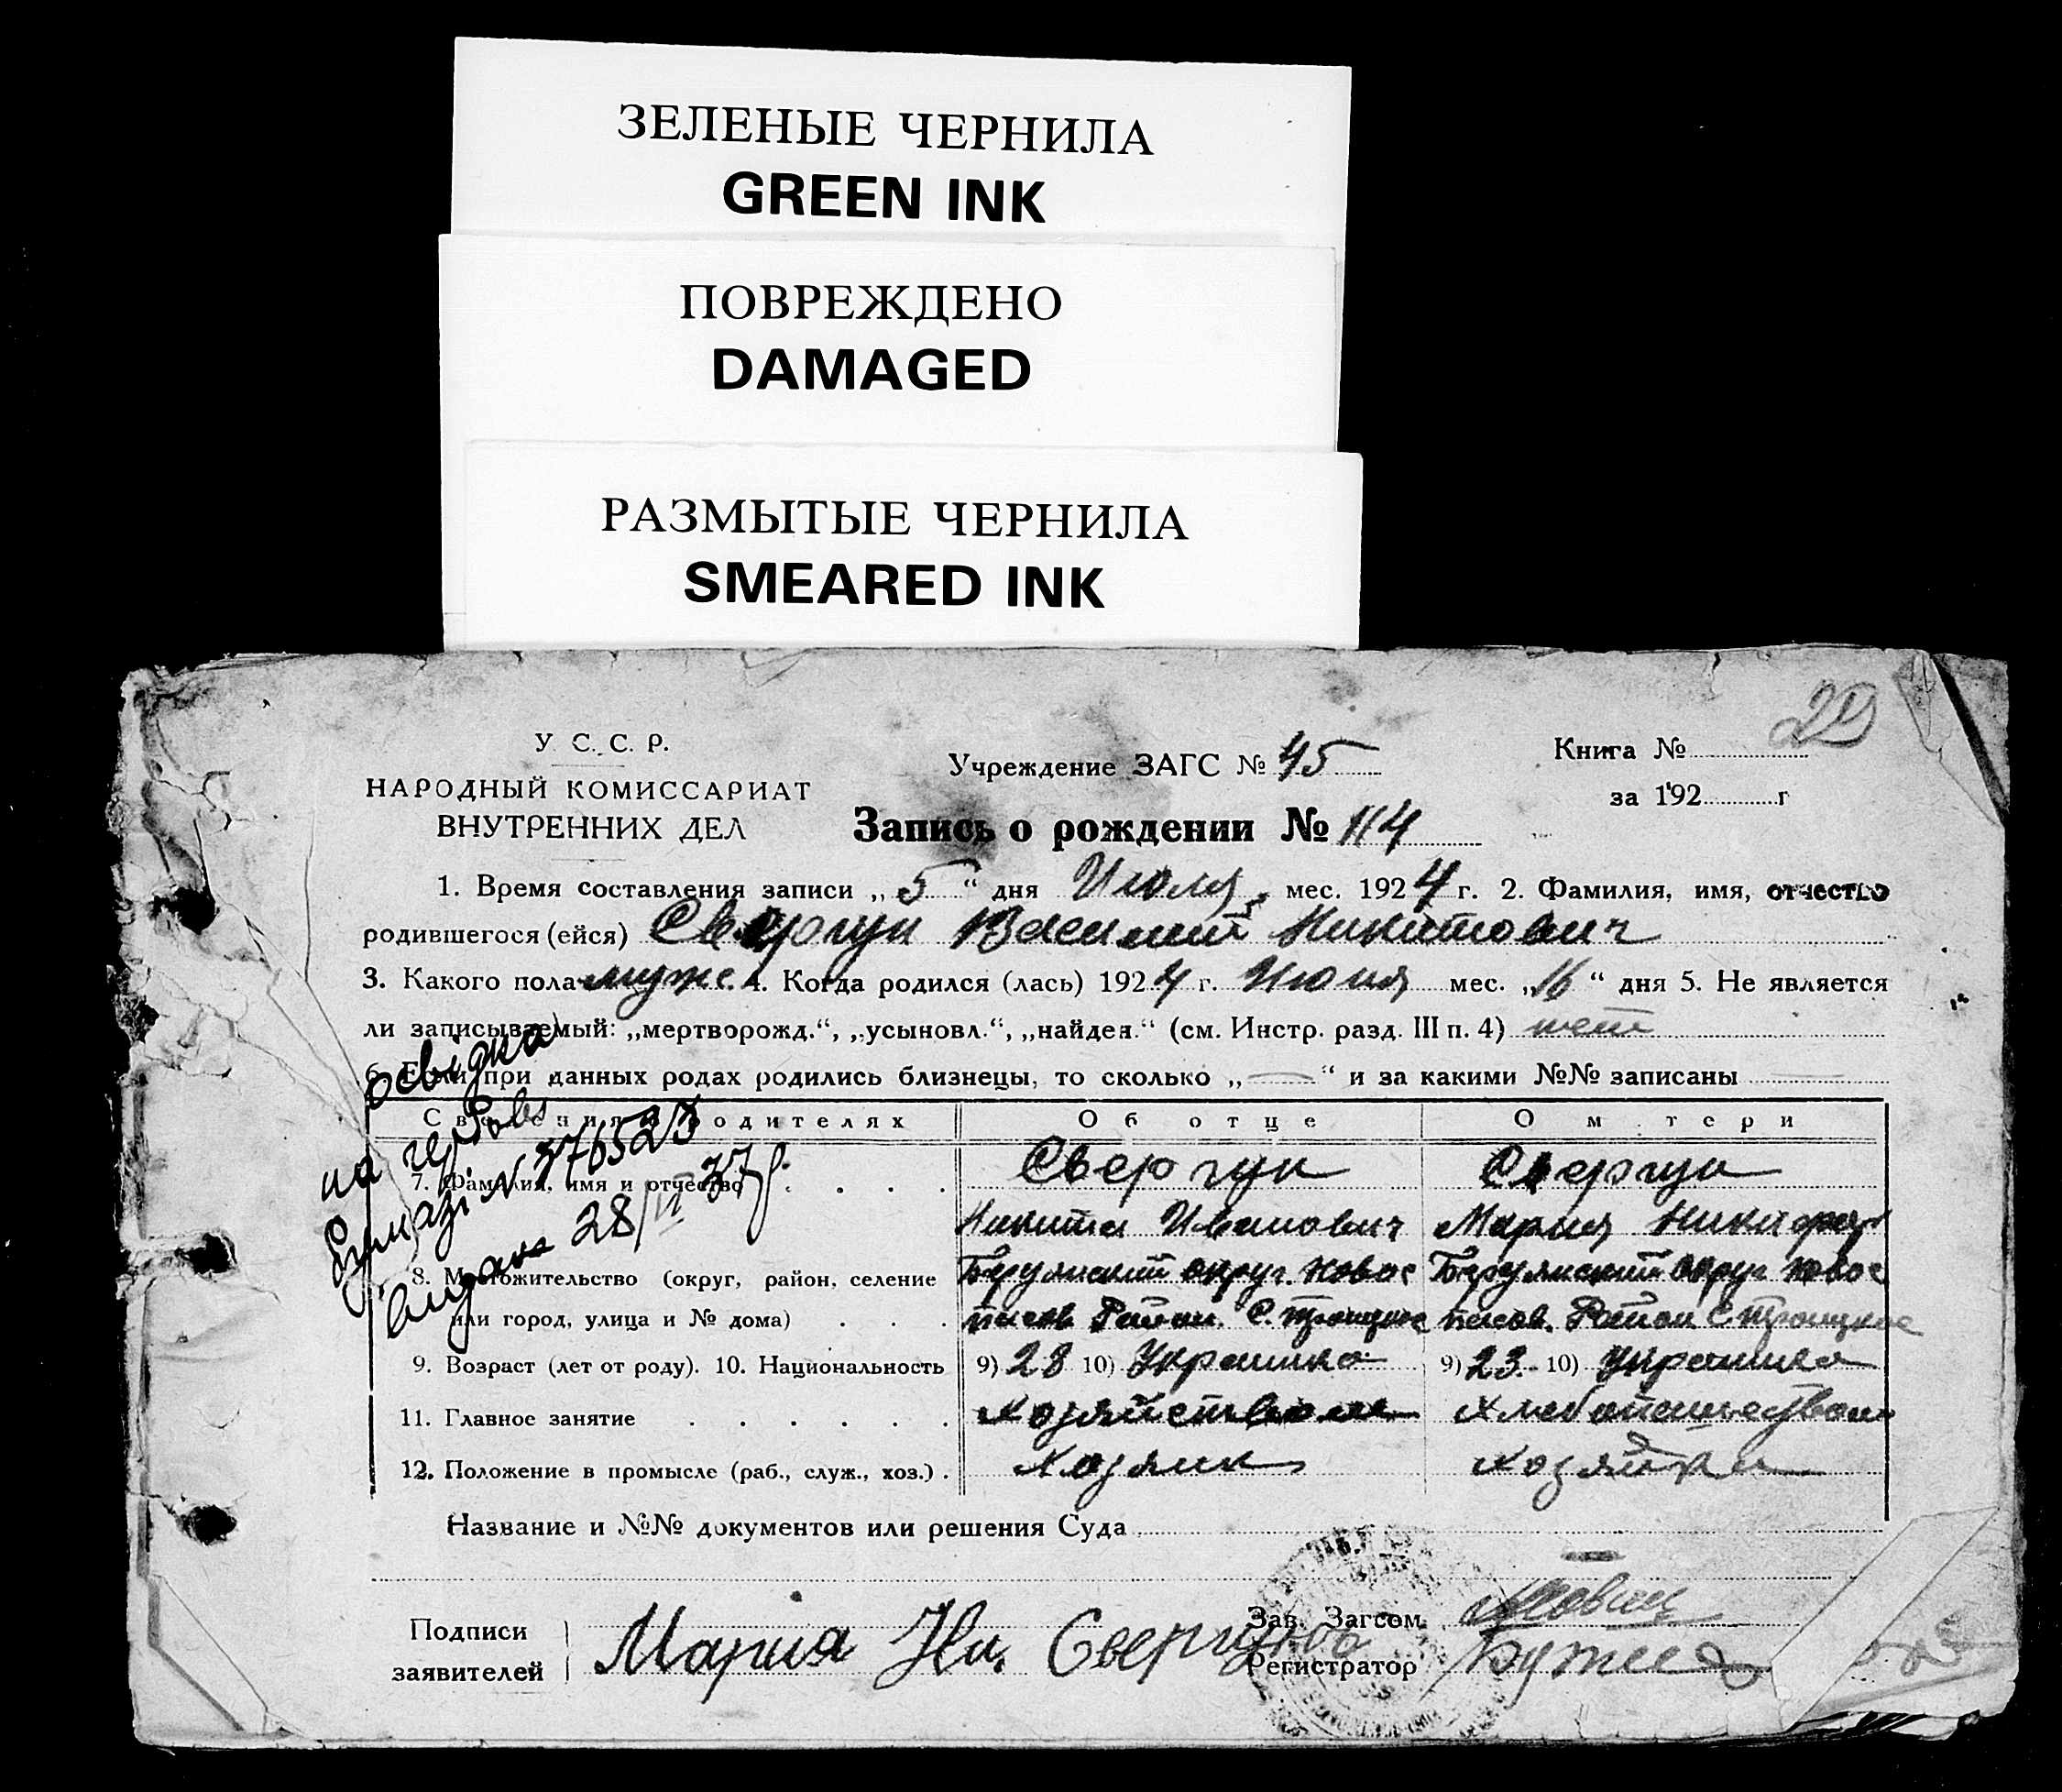 ЗЕЛЕНЫЕ ЧЕРНИЛА
GREEN INK
ПОВРЕЖДЕНО
DAMAGED
РАЗМЫТЫЕ ЧЕРНИЛА
SMEARED INK
29
У. С. С. Р.
НАРОДНЫЙ КОМИССАРИАТ
ВНУТРЕННИХ ДЕЛ
Учреждение ЗАГС № 45
Книга №
за 192 г
Запись о рождении № 114
1. Время составления записи „5“ дня Июля мес. 1924 г. 2. Фамилия, имя, отчество
родившегося (ейся) Свергун Василий Никитович
3. Какого пола муже. 4. Когда родился (лась) 1924 г. Июня мес. „16“ дня 5. Не является
ли записываемый: „мертворожд.“, „усыновл.“, „найден.“ (см. Инстр. разд. III п. 4) нет
6. Если при данных родах родились близнецы, то сколько „—“ и за какими №№ записаны —
Сведения о родителях Об отце О матери
7. Фамилия, имя и отчество Свергун Свергун
Никита Иванович Мария Никифор
8. Местожительство (округ, район, селение Бердянский округ Новос Бердянский округ Новос
или город, улица и № дома) пасов. Район. С. Троицкое пасов. Район С Троицкое
9. Возраст (лет от роду). 10. Национальность 9) 28 10) Украинка 9) 23 10) Украинка
11. Главное занятие Хлебопашеством
12. Положение в промысле (раб., служ., хоз.) Хозяин Хозяйка
освідка
на
№ 376523
видана 28/VI 37 р.
Название и №№ документов или решения Суда
Подписи
заявителей
Мария Ни. Свергунова
Зав. Загсом
Регистратор